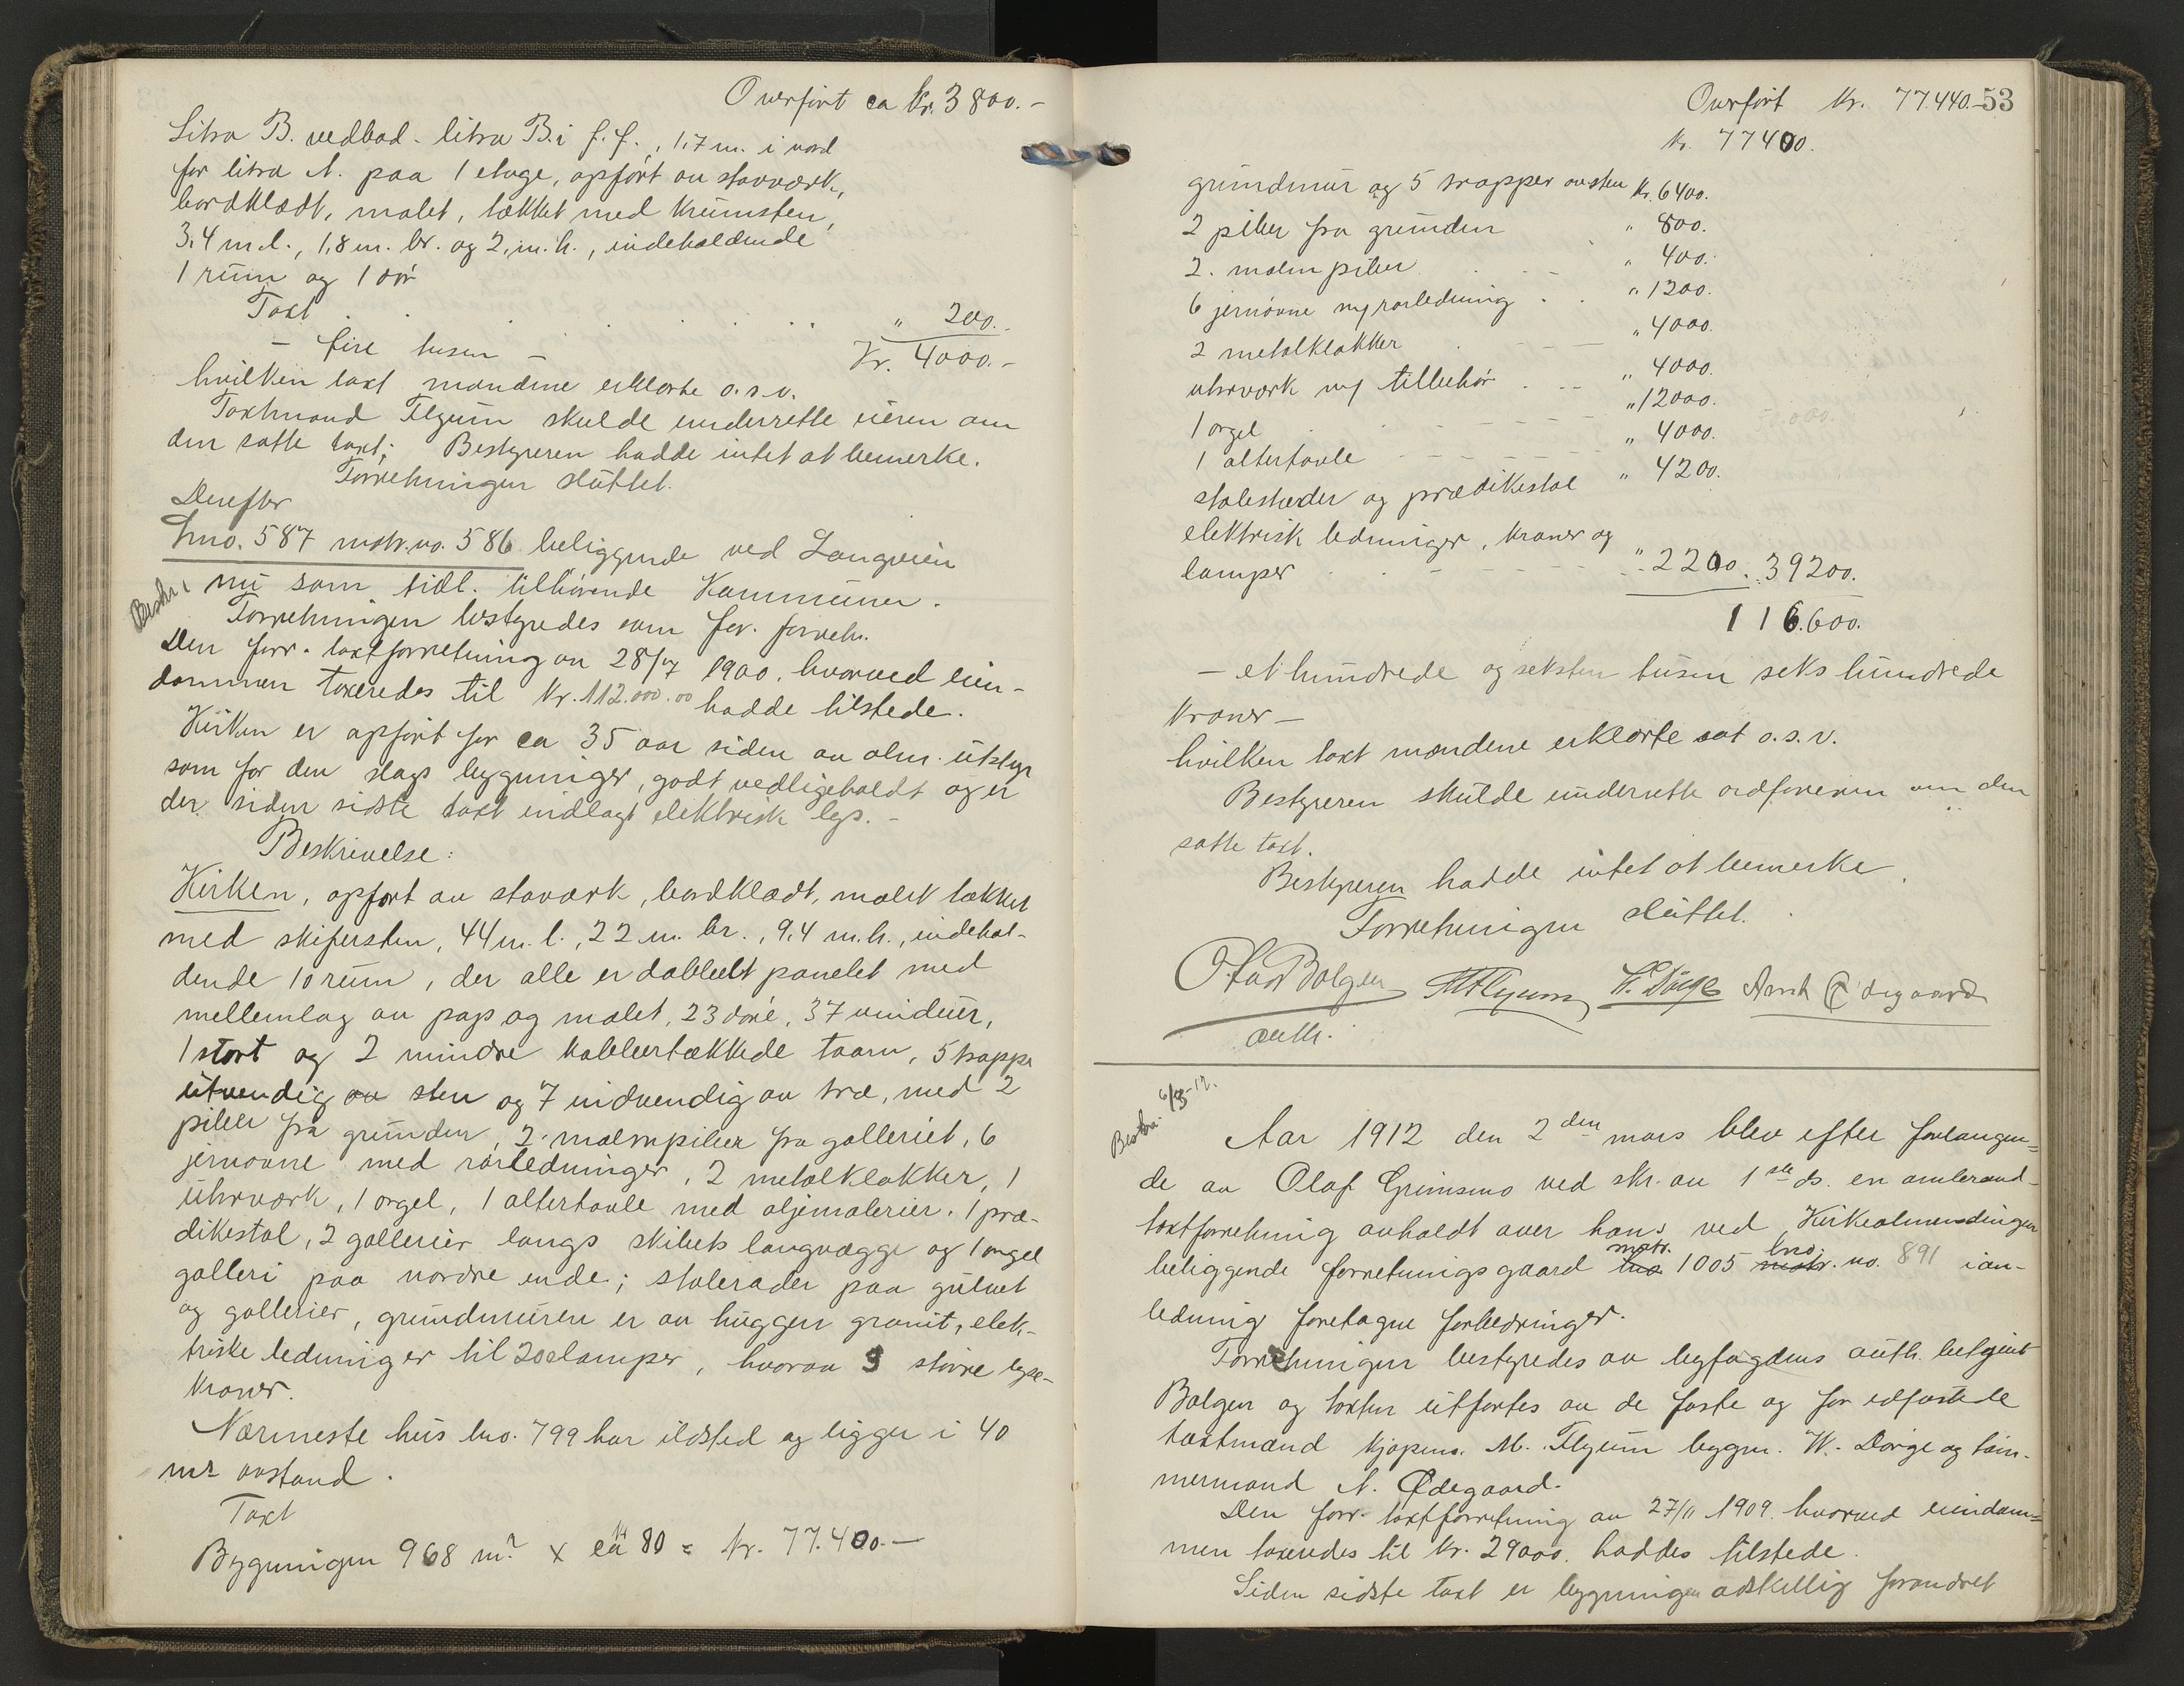 Overført ca kr. 3800.-
Litra B. vedbod - litra B. i f. f., 1,7 m. i nord
for litra A. paa 1 etage, opført av stavværk,
bordklædt, malet, tækket med krumsten,
3,4 m. l., 1,8 m. br. og 2, m. h., indeholdende
1 rum og 1 dør
Taxt . . . . . . . " 200.
- fire tusen - Kr. 4000.-
hvilken taxt mændene erklærte o. s. v.
Taxtmand Flyum skulde underrette eieren om
den satte taxt; Bestyreren hadde intet at bemerke.
Forretningen sluttet.
Derefter
Lno. 587 matr. no. 586 beliggende ved Langveien
Beskr.
nu som tidl. tilhørende Kommunen.
Forretningen bestyredes som for. forretn.
Den forr. taxtforretning av 28/7 1900, hvorved eien-
dommen taxeredes til Kr. 112.000.00 hadde tilstede.
Kirken er opført for ca 35 aar siden av alm. utstyr
som for den slags bygninger, godt vedligeholdt og er
der siden sidste taxt indlagt elektrisk lys. -
Beskrivelse:
Kirken, opført av stavværk, bordklædt, malet tækket
med skifersten, 44 m. l., 22 m. br., 9,4 m. h., indehol-
dende 10 rum, der alle er dobbelt panelet med
mellemlag av pap og malet, 23 døre, 37 vinduer,
1 stort og 2 mindre kobbertækkede taarn, 5 trapper
utvendig av sten og 7 indvendig av træ, med 2
piller fra grunden, 2 malmpiller fra galleriet, 6
jernovne med rørledninger, 2 metalklokker, 1
uhrværk, 1 orgel, 1 altertavle med oljemalerier. 1 præ-
dikestol, 2 gallerier langs skibets langvægge og 1 orgel
galleri paa nordre ende; stolerader paa gulvet
og gallerier, grundmuren er av huggen granit, elek-
triske ledninger til 200 lamper, hvorav 3 større lyse-
kroner.
Nærmeste hus lno. 799 har ildsted og ligger i 40
mr avstand.
Taxt
Bygningen 968 m² x ca kr 80 = kr. 77.400.-
Overført kr. 77.440.- 53
kr. 77400.
grundmur og 5 trapper av sten kr. 6400.
2 piller fra grunden " 800.
2. malmpiller . - - " 400.
6 jernovne m/ rørledning . . " 1200.
2 metalklokker - - - " 4000.
uhrværk m/ tilbehør . - - " 4000.
1 orgel - - - " 12000.
1 altertavle - - - - " 4000.
stolestæder og prædikestol " 4200.
elektrisk ledninger, kroner og
lamper . . - - - - " 2200. 39200.
116.600.
- et hundrede og seksten tusen seks hundrede
kroner -
hvilken taxt mændene erklærte sat o. s. v.
Bestyreren skulde underrette ordføreren om den
satte taxt.
Bestyreren hadde intet at bemerke.
Forretningen sluttet.
Olav Bolgen M Flyum W. Dørge Arnt Ødegaard
auth.
Beskr. 6/3-12.
Aar 1912 den 2den mars blev efter forlangen-
de av Olaf Grimsmo ved skr. av 1ste ds. en ombrand-
taxtforretning avholdt over hans ved Kirkealmendingen
beliggende forretningsgaard matr. 1005 lno. no. 891 i an-
ledning foretagne forbedringer.
Forretningen bestyredes av byfogdens auth. betjent
Bolgen og taxten utførtes av de faste og for edfæstede
taxtmænd kjøpm. M. Flyum bygm. W. Dørge og tøm-
mermand A. Ødegaard.
Den forr. taxtforretning av 27/11 1909. hvorved eiendom-
men taxeredes til kr. 29000. haddes tilstede.
Siden sidste taxt er bygningen adskillig forandret